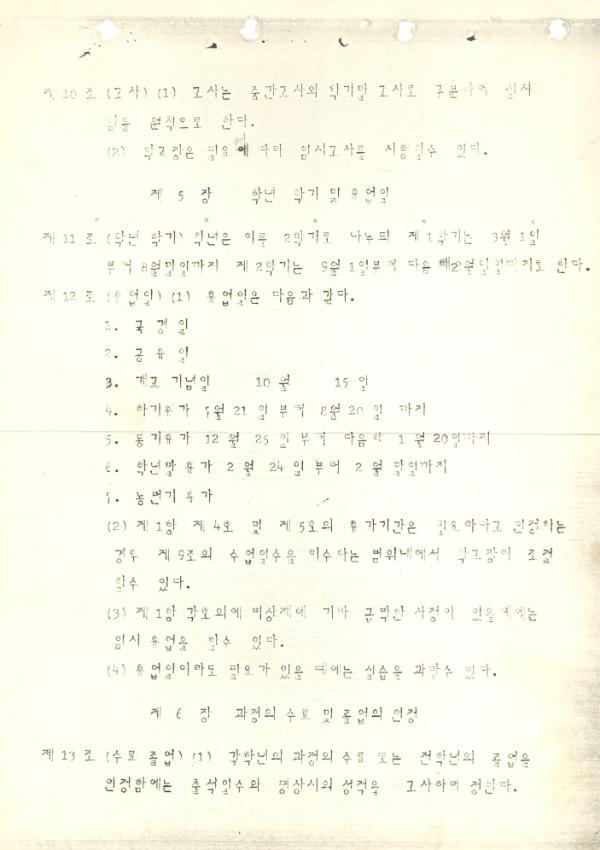 제 10 조 (고사) (1) 고사는 중간고사와 학기말 고사로 구분하여 실시
함을 원칙으로 한다.
(2) 학교장은 필요에 따라 임시고사를 시행할수 있다.
제 5 장 학년 학기 및 휴업일
제 11 조 (학년 학기) 학년은 이를 2학기로 나누되 제 1학기는 3월 1일
부터 8월말일까지 제 2학기는 9월 1일부터 다음 2월말일까지로 한다.
제 12 조 (휴업일) (1) 휴업일은 다음과 같다.
1. 국 경 일
2. 공 휴 일
3. 개교 기념일 10 월 15 일
4. 하기휴가 7월 21 일 부터 8월 20 일 까지
5. 동기휴가 12 월 25 일 부터 다음해 1 월 20일까지
6. 학년말 휴가 2 월 24 일 부터 2 월 말일까지
7. 농번기 휴가
(2) 제 1항 제 4호 및 제 5호의 휴가기간은 필요하다고 인정하는
경우 제 9조의 수업일수을 이수하는 범위내에서 학교장이 조절
할수 있다.
(3) 제 1항 각호외에 비상재해 기타 급박한 사정이 있을때에는
임시 휴업을 할수 있다.
(4) 휴업일이라도 필요가 있을 때에는 실습을 과할수 있다.
제 6 장 과정의 수료 및 졸업의 인정
제 13 조 (수료 졸업) (1) 각학년의 과정의 수료 또는 전학년의 졸업을
인정함에는 출석일수와 평상시의 성적을 고사하여 정한다.